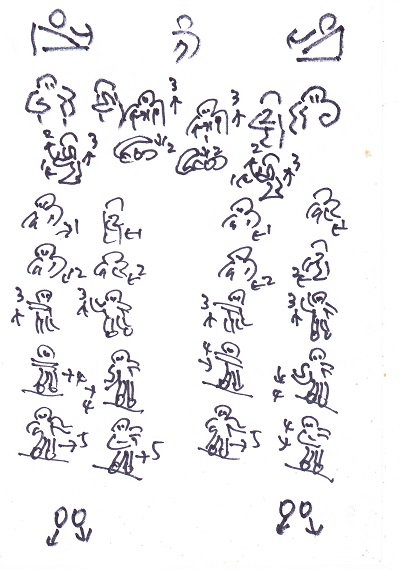 3 3
2 3 2 2 2 3
1 1 1 1 1
2 2 2 2
3 3 3 3
4 4 4 4
5 5 5 4